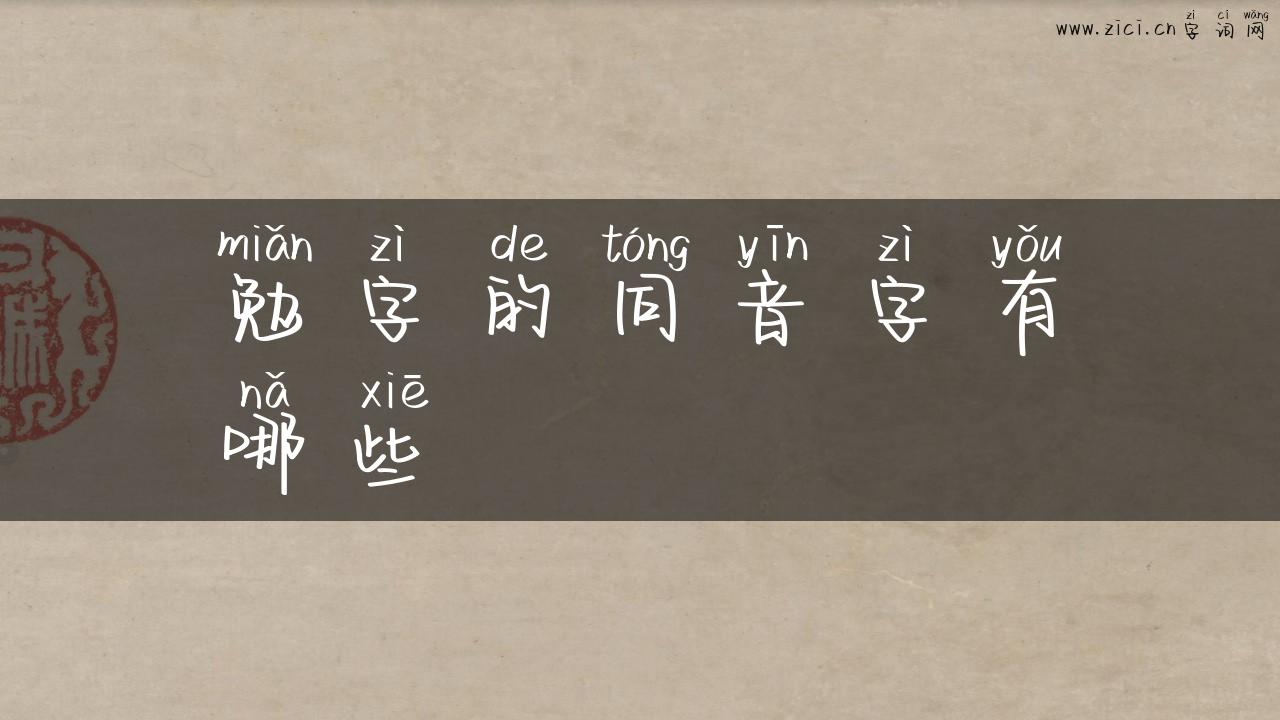 zì cí wǎng
www.zici.cn 字词网
miǎn zì de tóng yīn zì yǒu
勉字的同音字有
nǎ xiē
哪些